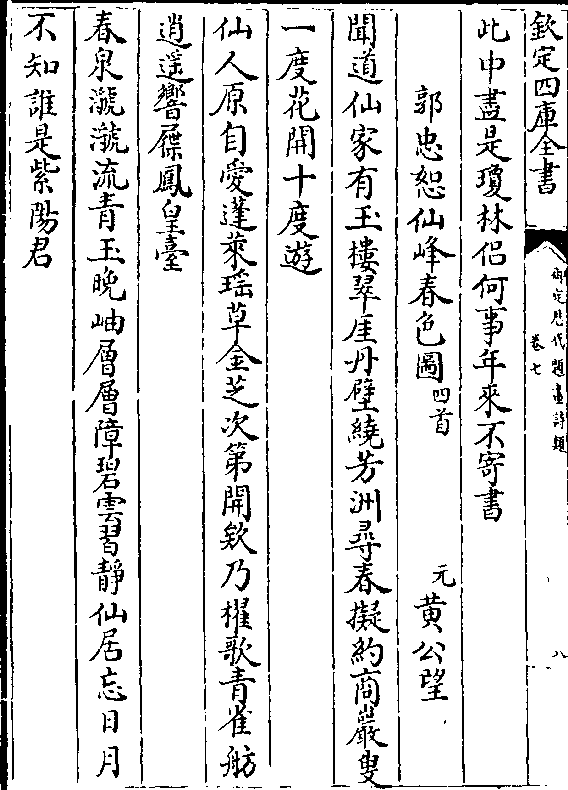 欽定四庫全書
御定歷代題畫詩類
卷七
八
此中盡是瓊林侣何事年來不寄書
郭忠恕仙峰春色圖四首
元黄公望
聞道仙家有玉樓翠厓丹壁繞芳洲尋春擬約商巖叟
一度花開十度遊
仙人原自愛蓬萊瑶草金芝次第開欸乃櫂歌青雀舫
逍遥響屧鳳皇臺
春泉㶁㶁流青玉晚岫層層障碧雲習静仙居忘日月
不知誰是紫陽君